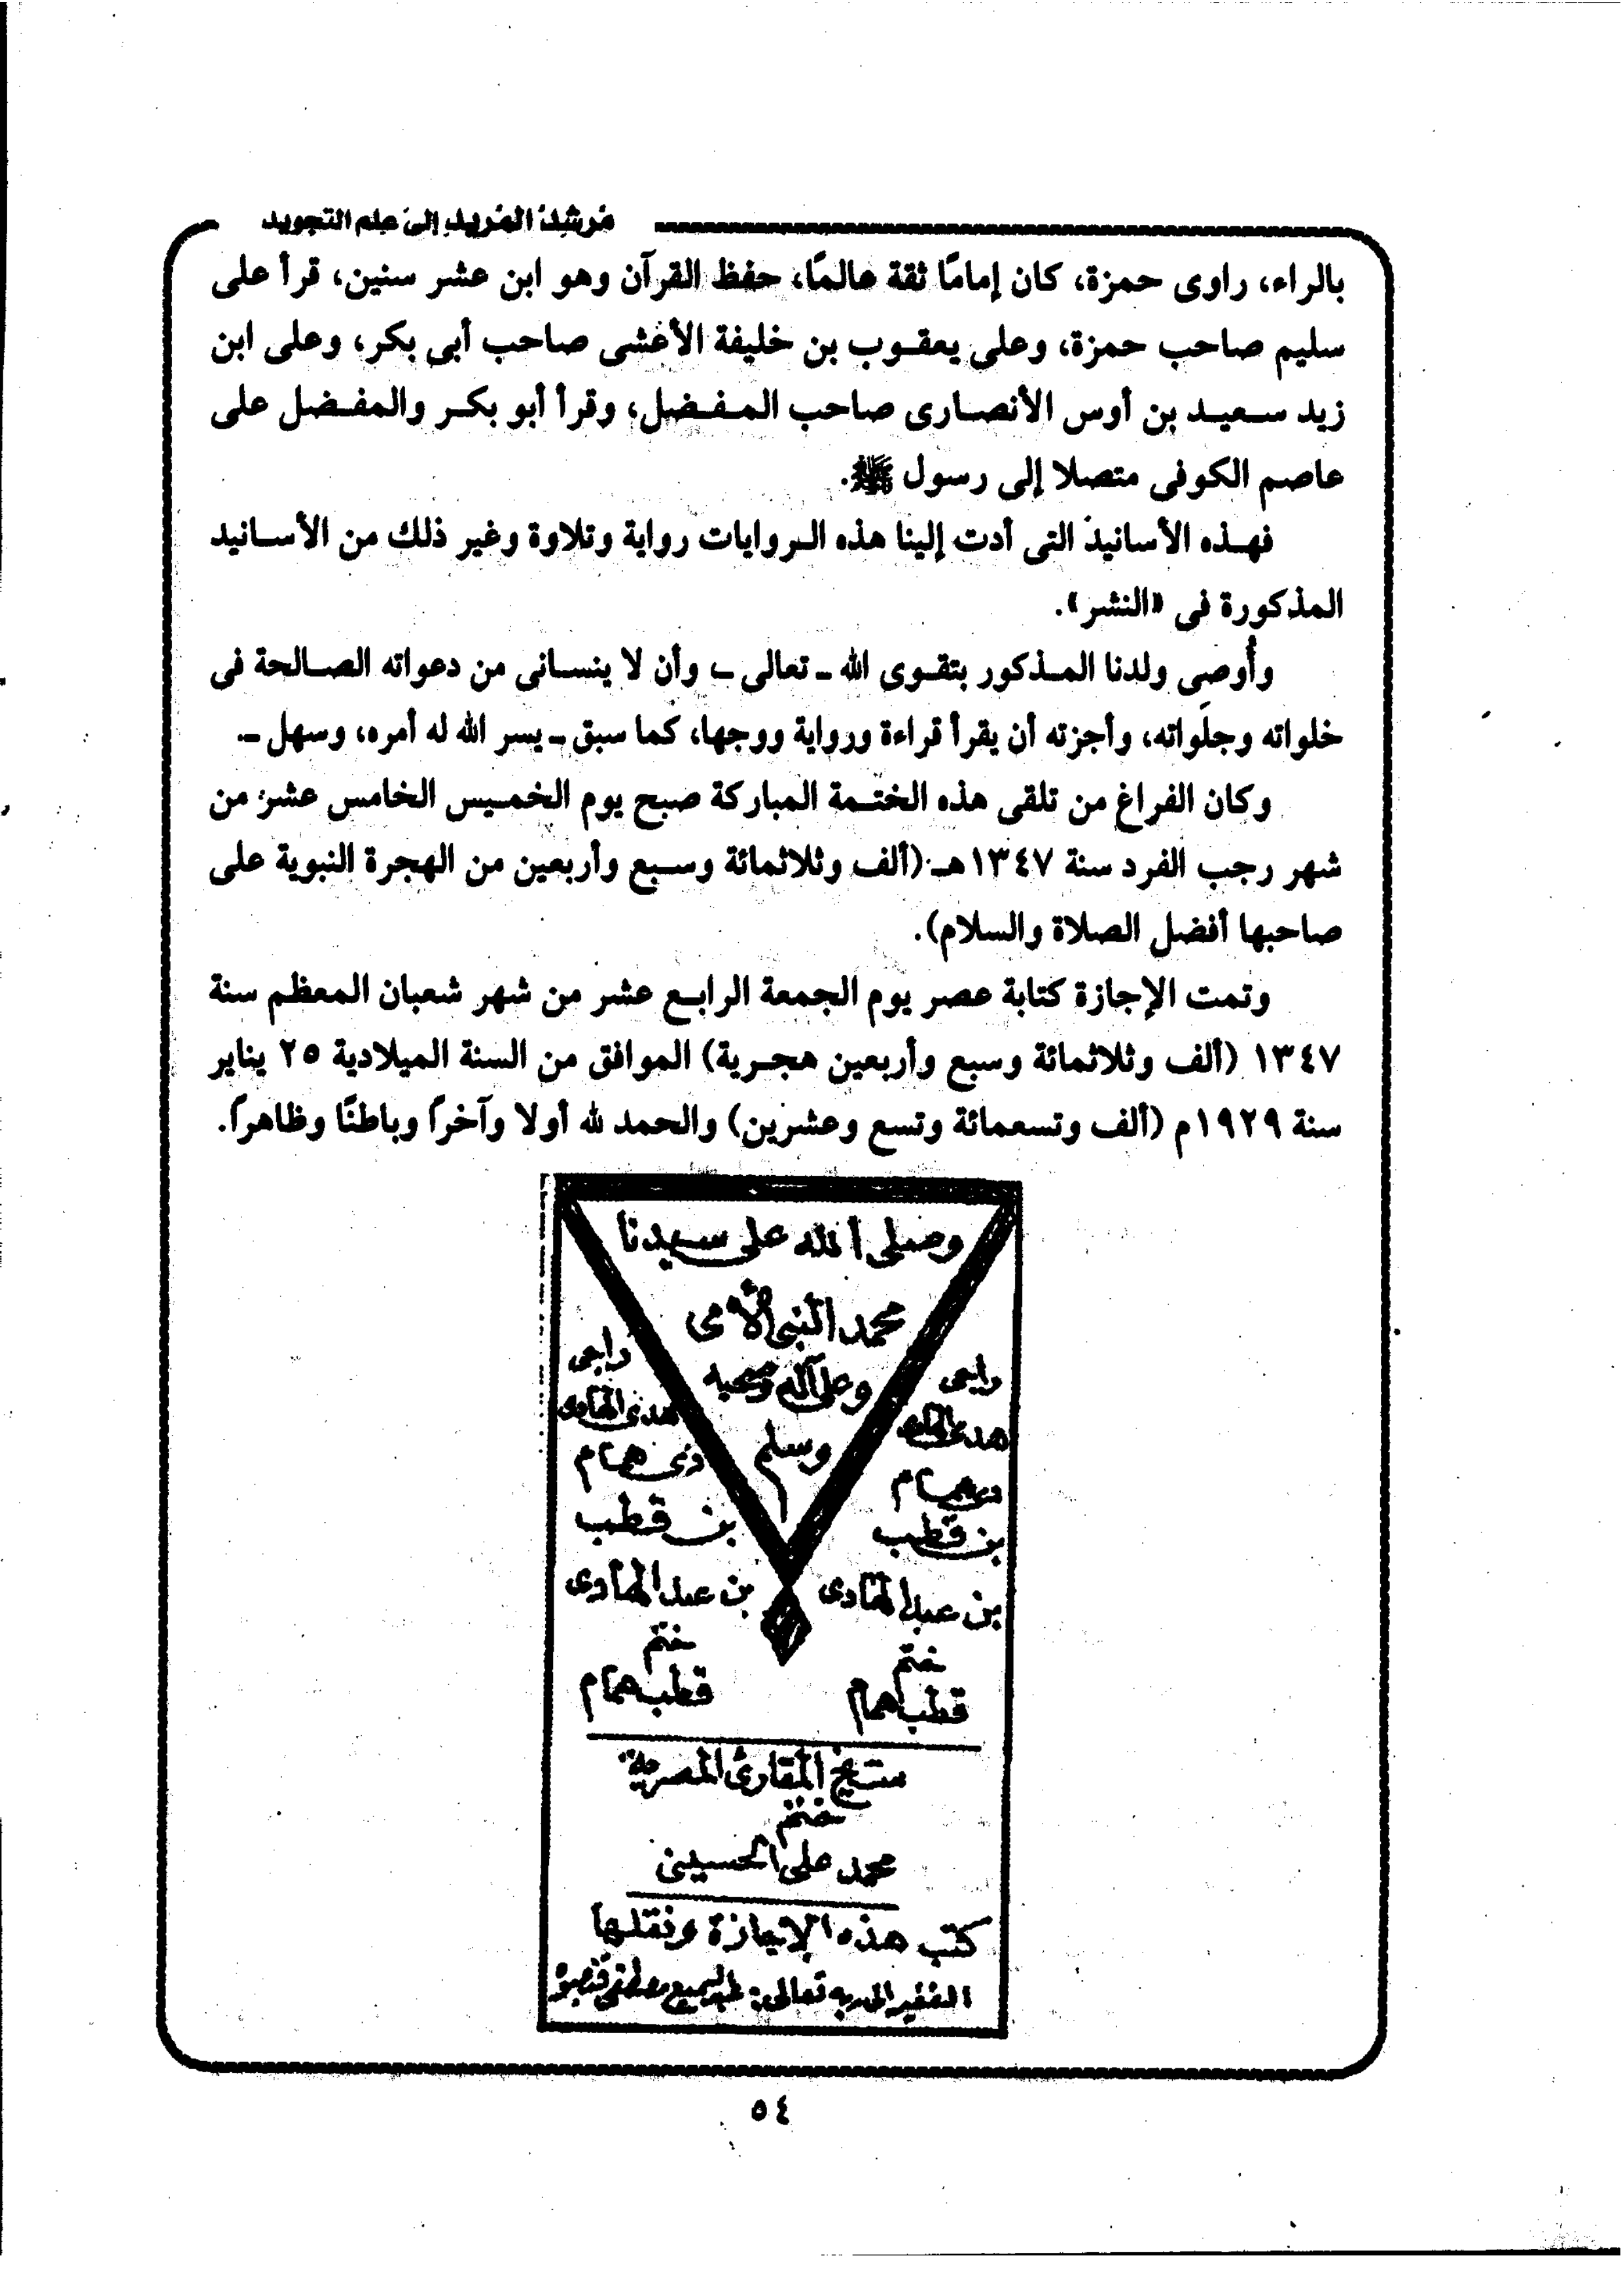 مرشد المريد إلى علم التجويد
بالراء، راوى حمزة، كان إمامًا ثقة عالمًا، حفظ القرآن وهو ابن عشر سنين، قرأ على
سليم صاحب حمزة، وعلى يعقوب بن خليفة الأعشى صاحب أبى بكر، وعلى ابن
زيد سعيد بن أوس الأنصارى صاحب المفضل، وقرأ أبو بكر والمفضل على
عاصم الكوفى متصلا إلى رسول ﷺ.
فهذه الأسانيد التى أدت إلينا هذه الروايات رواية وتلاوة وغير ذلك من الأسانيد
المذكورة فى «النشر».
وأُوصِى ولدنا المذكور بتقوى الله ـ تعالى ـ، وأن لا ينسانى من دعواته الصالحة فى
خلواته وجلواته، وأجزته أن يقرأ قراءة ورواية ووجها، كما سبق ـ يسر الله له أمره، وسهل ـ.
وكان الفراغ من تلقى هذه الختمة المباركة صبح يوم الخميس الخامس عشر من
شهر رجب الفرد سنة ١٣٤٧هـ (ألف وثلاثمائة وسبع وأربعين من الهجرة النبوية على
صاحبها أفضل الصلاة والسلام).
وتمت الإجازة كتابة عصر يوم الجمعة الرابع عشر من شهر شعبان المعظم سنة
١٣٤٧ (ألف وثلاثمائة وسبع وأربعين هجرية) الموافق من السنة الميلادية ٢٥ يناير
سنة ١٩٢٩م (ألف وتسعمائة وتسع وعشرين) والحمد لله أولا وآخرًا وباطنًا وظاهرًا.
وصلى الله على سيدنا
محمد النبى الأمى
وعلى آله وصحبه
وسلم
راجى
هدى الهادى
همام
بن قطب
بن عبد الهادى
ختم
قطب همام
راجى
هدى الهادى
ذى همام
بن قطب
بن عبد الهادى
ختم
قطب همام
شيخ المقارئ المصرية
ختم
محمد على الحسينى
كتب هذه الإجازة ونقلها
الفقير إلى ربه تعالى: مصطفى
٥٤